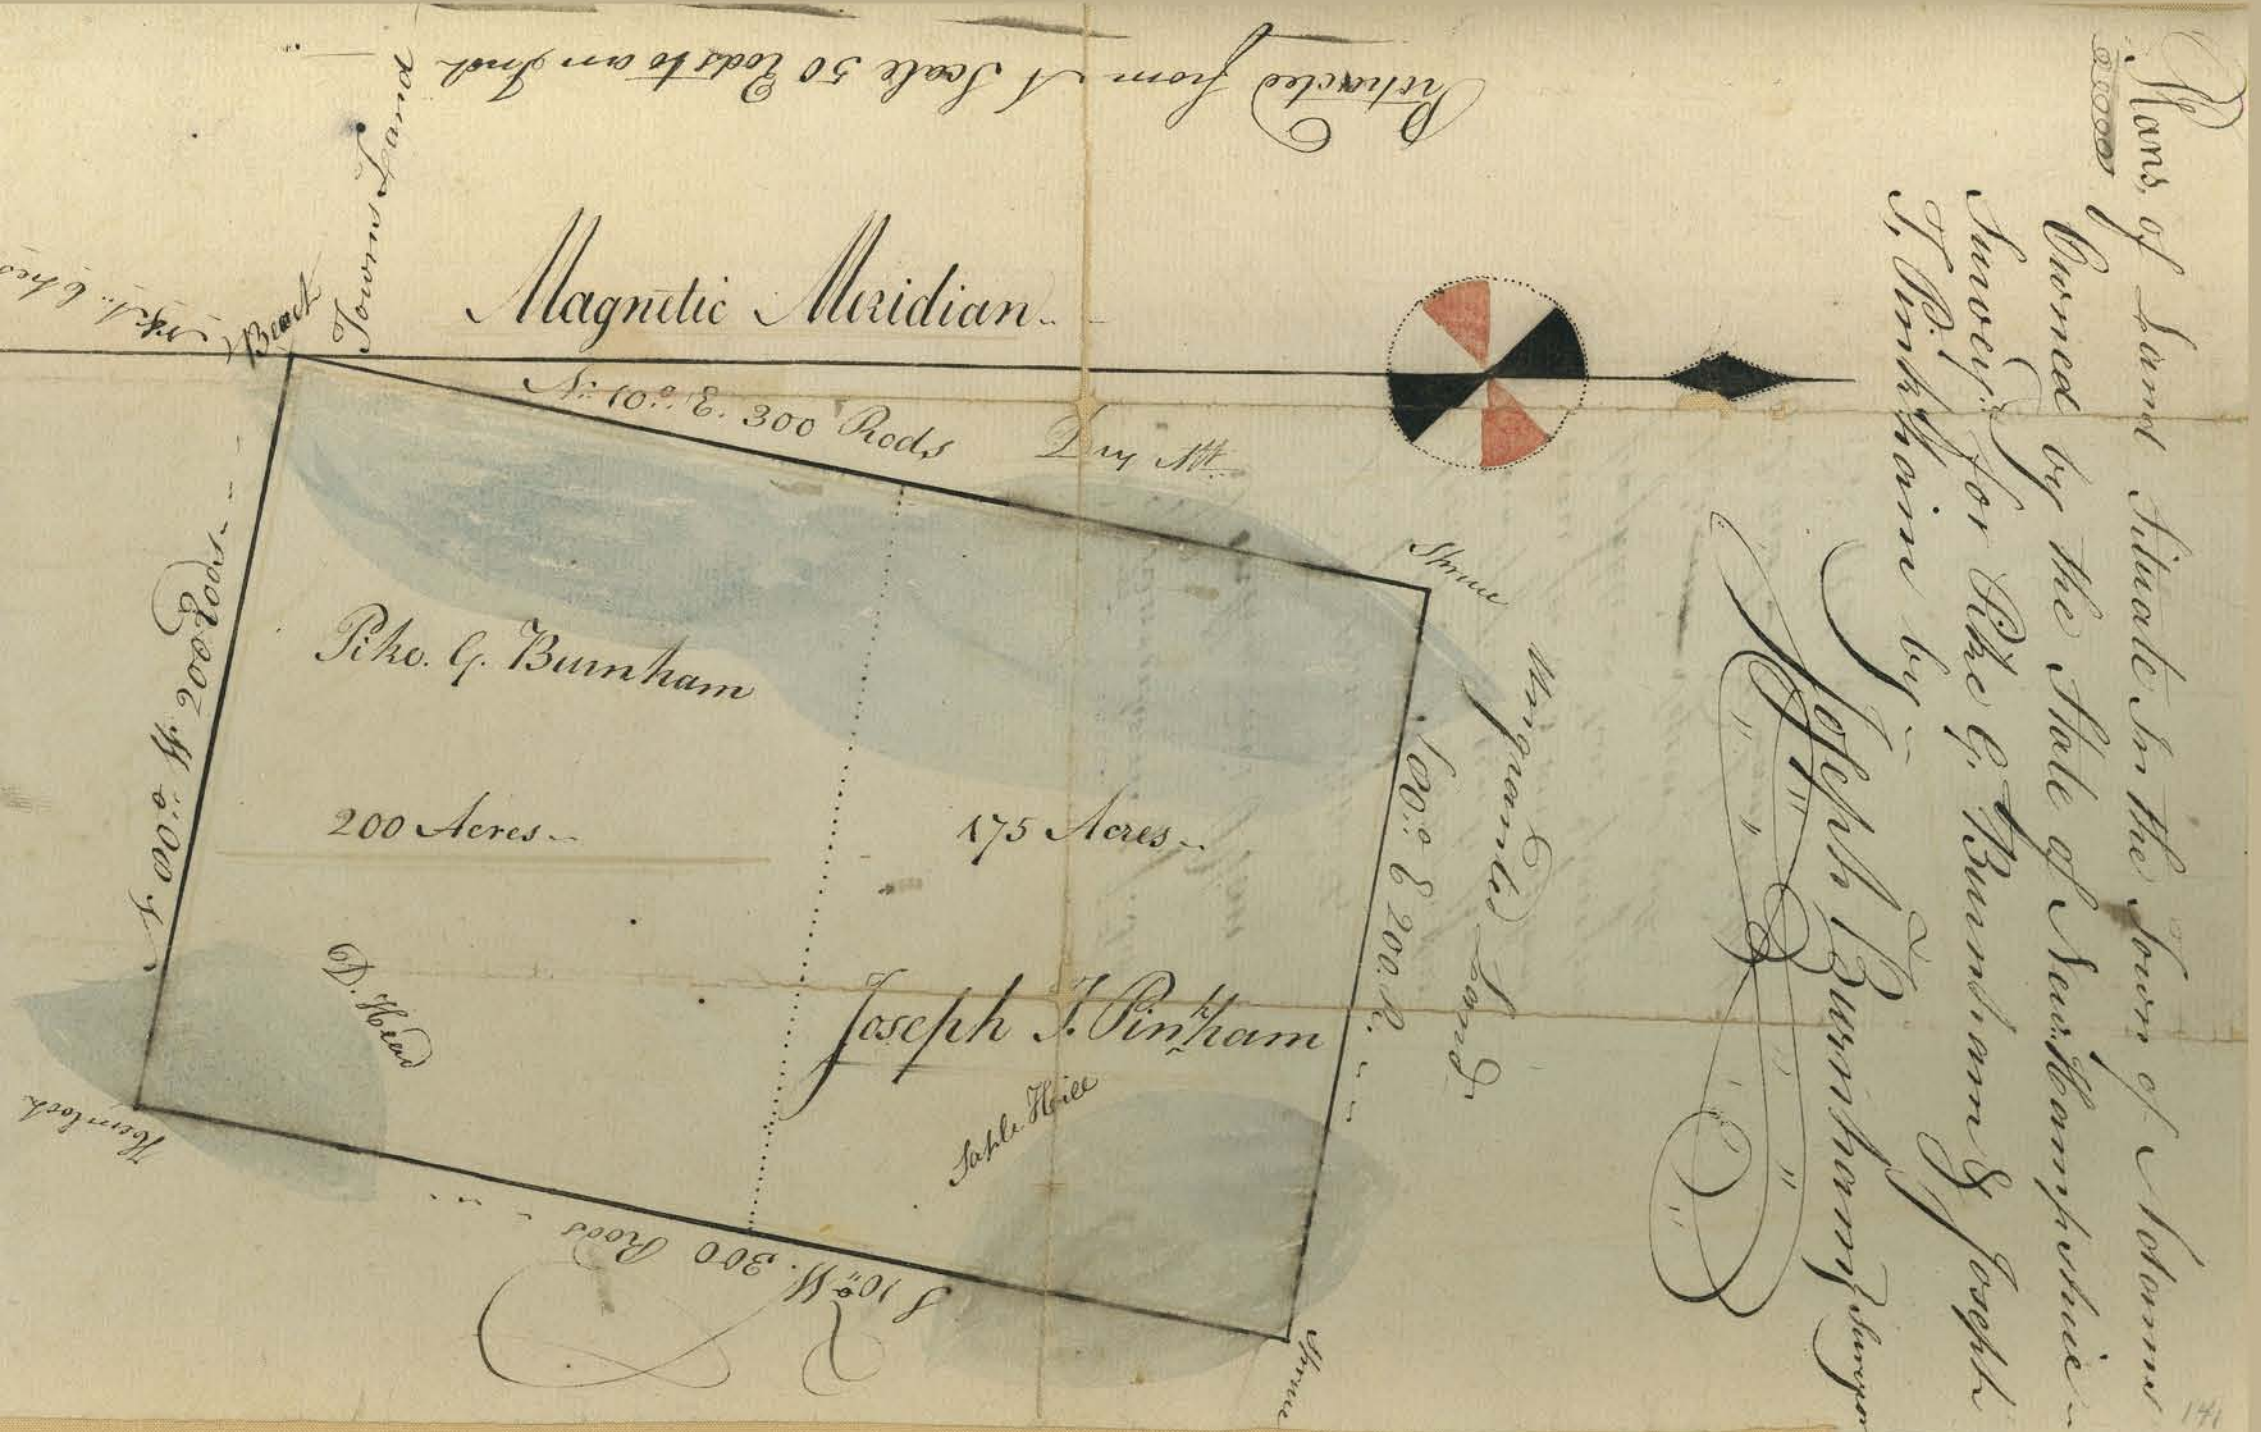 Plans, of Land Situate In the Town of
Owned by the State of New. Hampshire
Survey,d for Pike G. Burnham & Joseph
T. Pinkham by
Joseph Burnham Surveyor
Protracted from A Scale 50 Rods to an Inch
Towns Land
Magnetic Meridian
N. 10.° E. 300 Rods
Dry Mt.
Spruce
Ungranted Land
Pike. G. Burnham
200 Acres
175 Acres
S. 80.° W 200 Rods
80.° E 200. R.
D. Head
Joseph T. Pinkham
Saple Hill
Hemlock
S 10° W. 300 Rods
Spruce
141